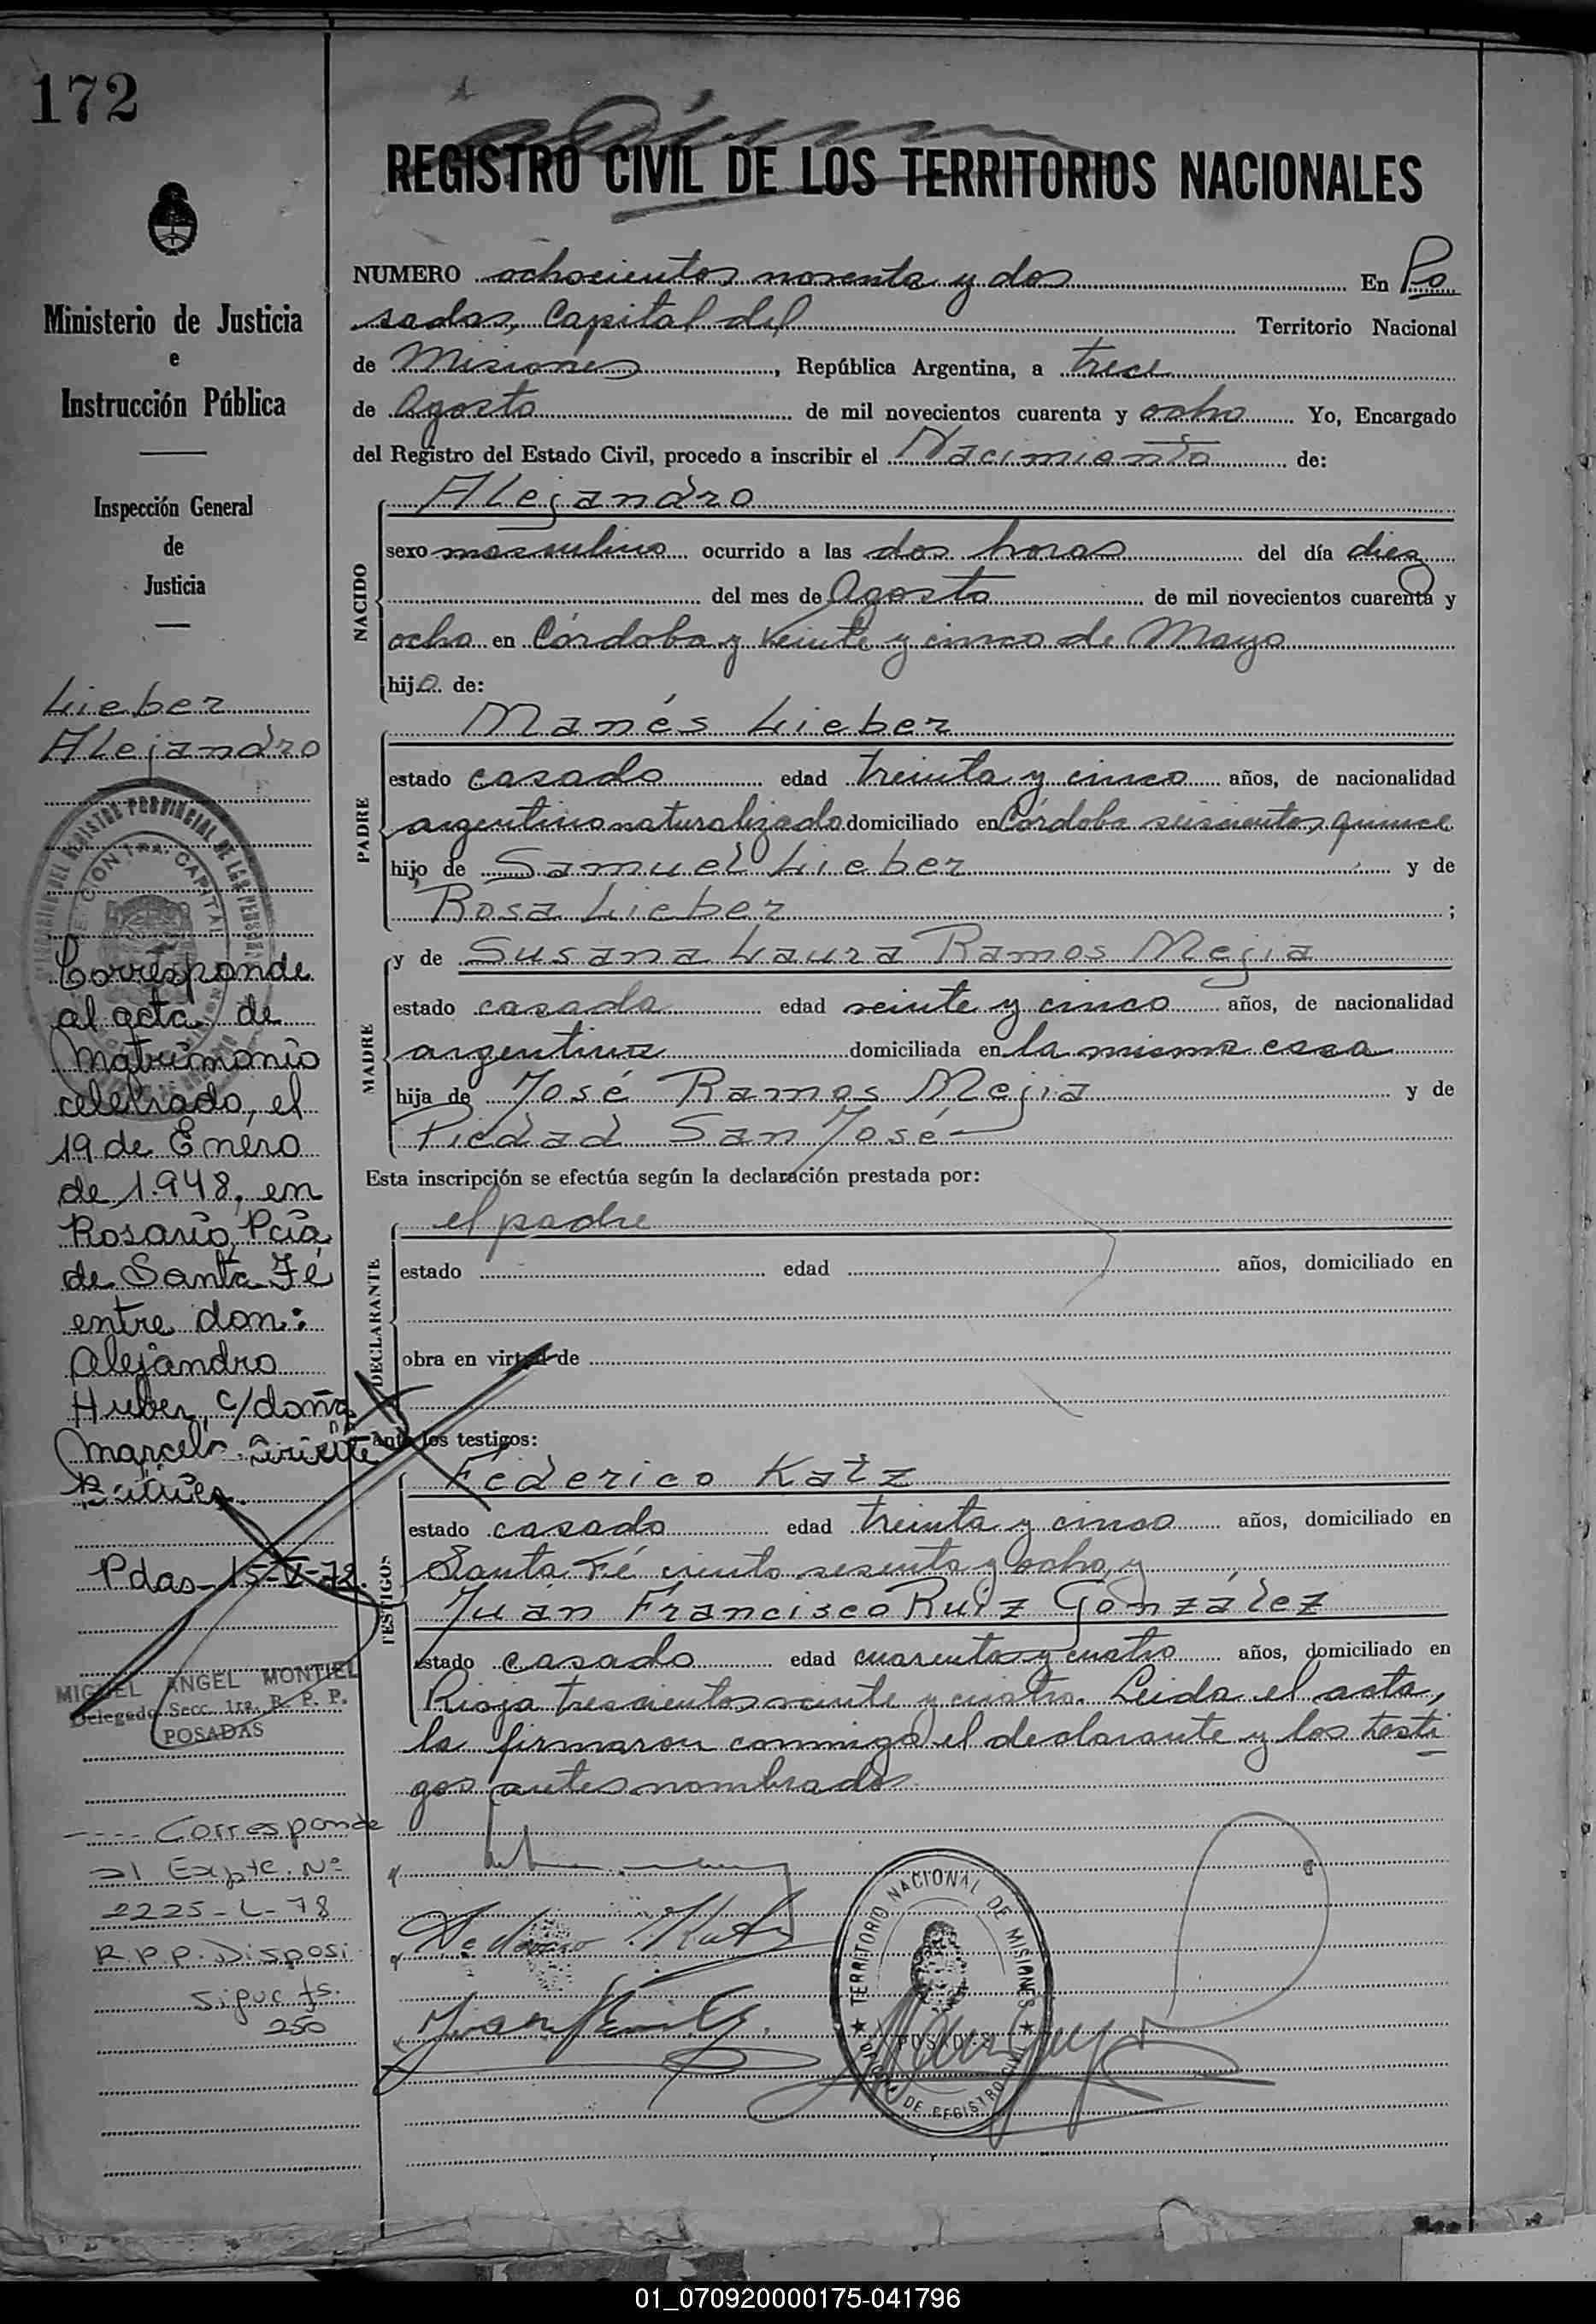 172
REGISTRO CIVIL DE LOS TERRITORIOS NACIONALES
Ministerio de Justicia
e
Instrucción Pública
Inspección General
de
Justicia
Lieber
Alejandro
Corresponde
al acta de
Matrimonio
celebrado, el
19 de Enero
de 1.948, en
Rosario, Pcia
de Santa Fé
entre don:
Alejandro
Huber, c/doña
Marcela
Pdas-15-V-72.
MIGUEL ANGEL MONTIEL
Delegado Secc. 1ra. R. P. P.
POSADAS
---- Corresponde
al Expte. Nº
2225-L-78
R.P.P. Disposi
Sigue fs.
250
NUMERO ochocientos noventa y dos En Po
sadas, Capital del Territorio Nacional
de Misiones, República Argentina, a trece
de Agosto de mil novecientos cuarenta y ocho Yo, Encargado
del Registro del Estado Civil, procedo a inscribir el Nacimiento de:
NACIDO
Alejandro
sexo masculino ocurrido a las dos horas del día diez
del mes de Agosto de mil novecientos cuarenta y
ocho en Córdoba y veinte y cinco de Mayo
hijo de:
PADRE
Manés Lieber
estado casado edad treinta y cinco años, de nacionalidad
argentino naturalizado domiciliado en Córdoba seiscientos quince
hijo de Samuel Lieber y de
Rosa Lieber ;
MADRE
y de Susana Laura Ramos Mejia
estado casada edad veinte y cinco años, de nacionalidad
argentina domiciliada en la misma casa
hija de José Ramos Mejia y de
Piedad San José
Esta inscripción se efectúa según la declaración prestada por:
DECLARANTE
el padre
estado edad años, domiciliado en
obra en virtud de
ante los testigos:
TESTIGOS
Federico Katz
estado casado edad treinta y cinco años, domiciliado en
Santa Fé ciento sesenta y ocho, y
Juan Francisco Ruiz González
estado casado edad cuarenta y cuatro años, domiciliado en
Rioja trescientos veinte y cuatro. Leida el acta,
la firmaron conmigo el declarante y los testi
gos antes nombrados
Federico Katz
TERRITORIO NACIONAL DE MISIONES
POSADAS
OFICINA DE REGISTRO CIVIL
01_070920000175-041796